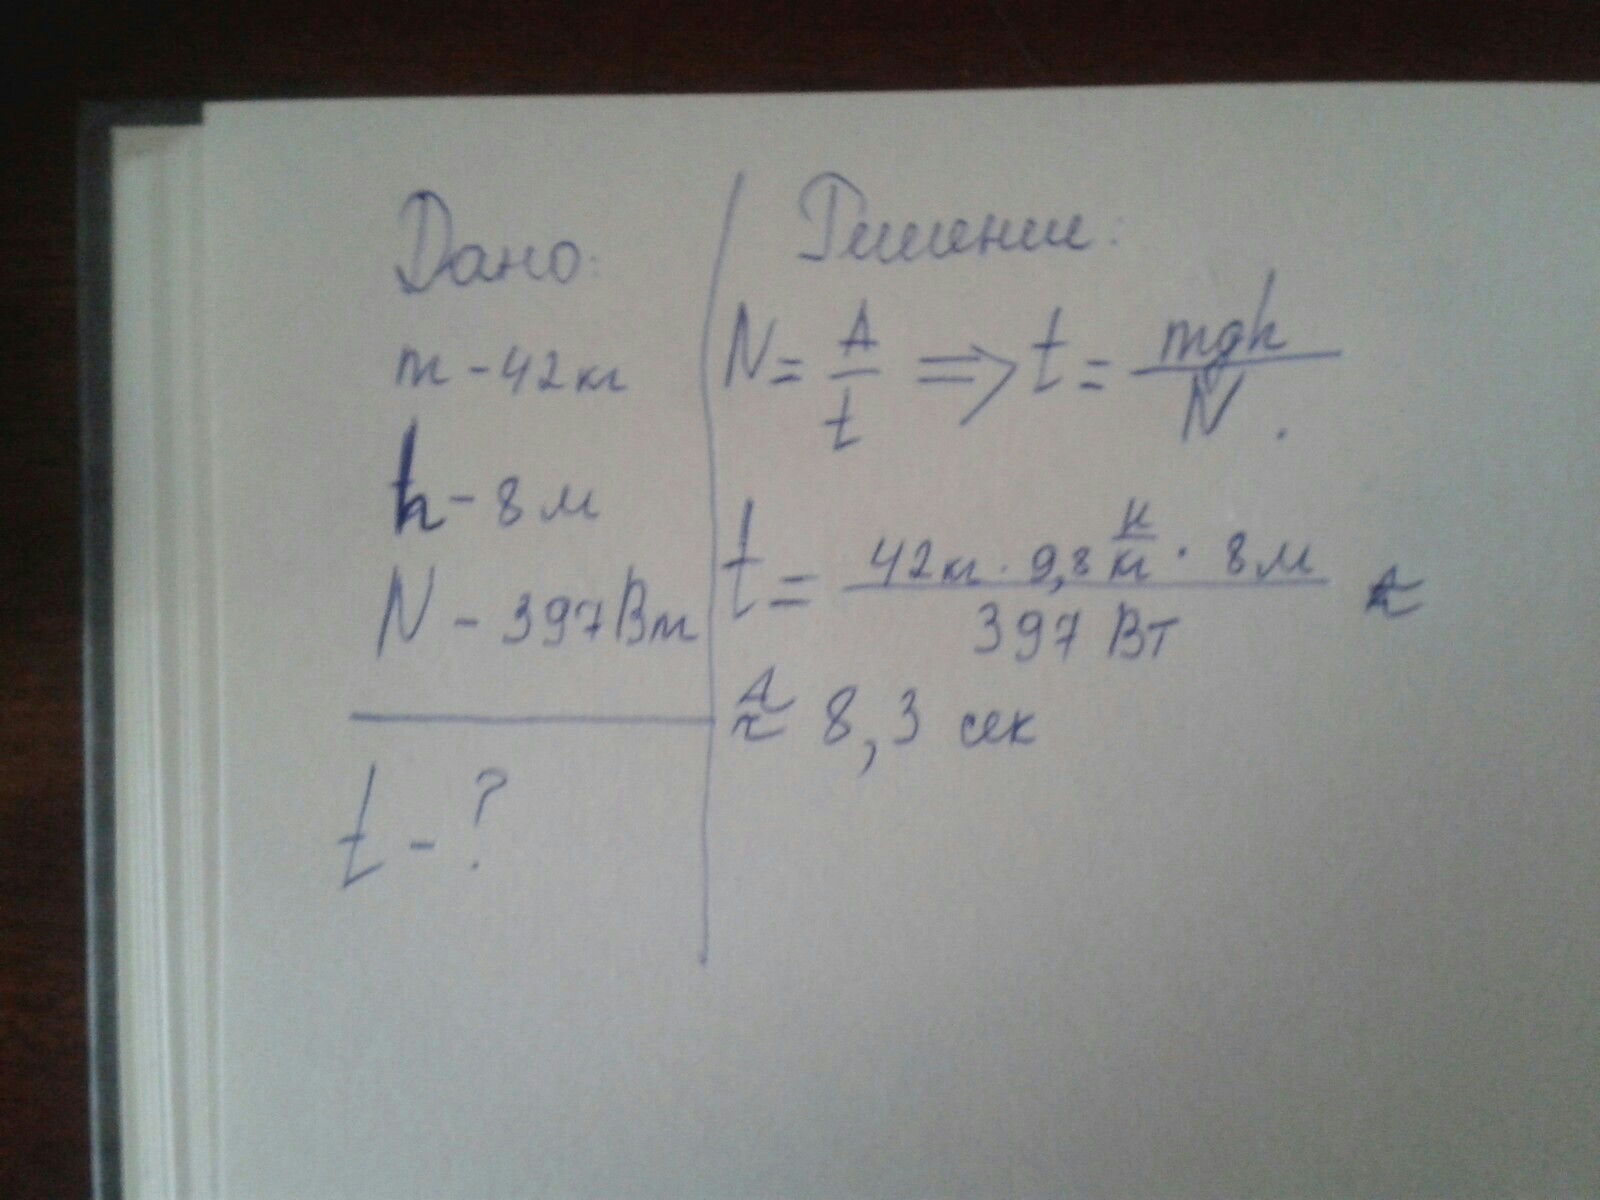 Дано:
m - 42 кг
h - 8 м
N - 397 Вт
t - ?
Решение:
N = A/t => t = mgh/N.
t = 42 кг · 9,8 Н/кг · 8 м / 397 Вт ≈
≈ 8,3 сек